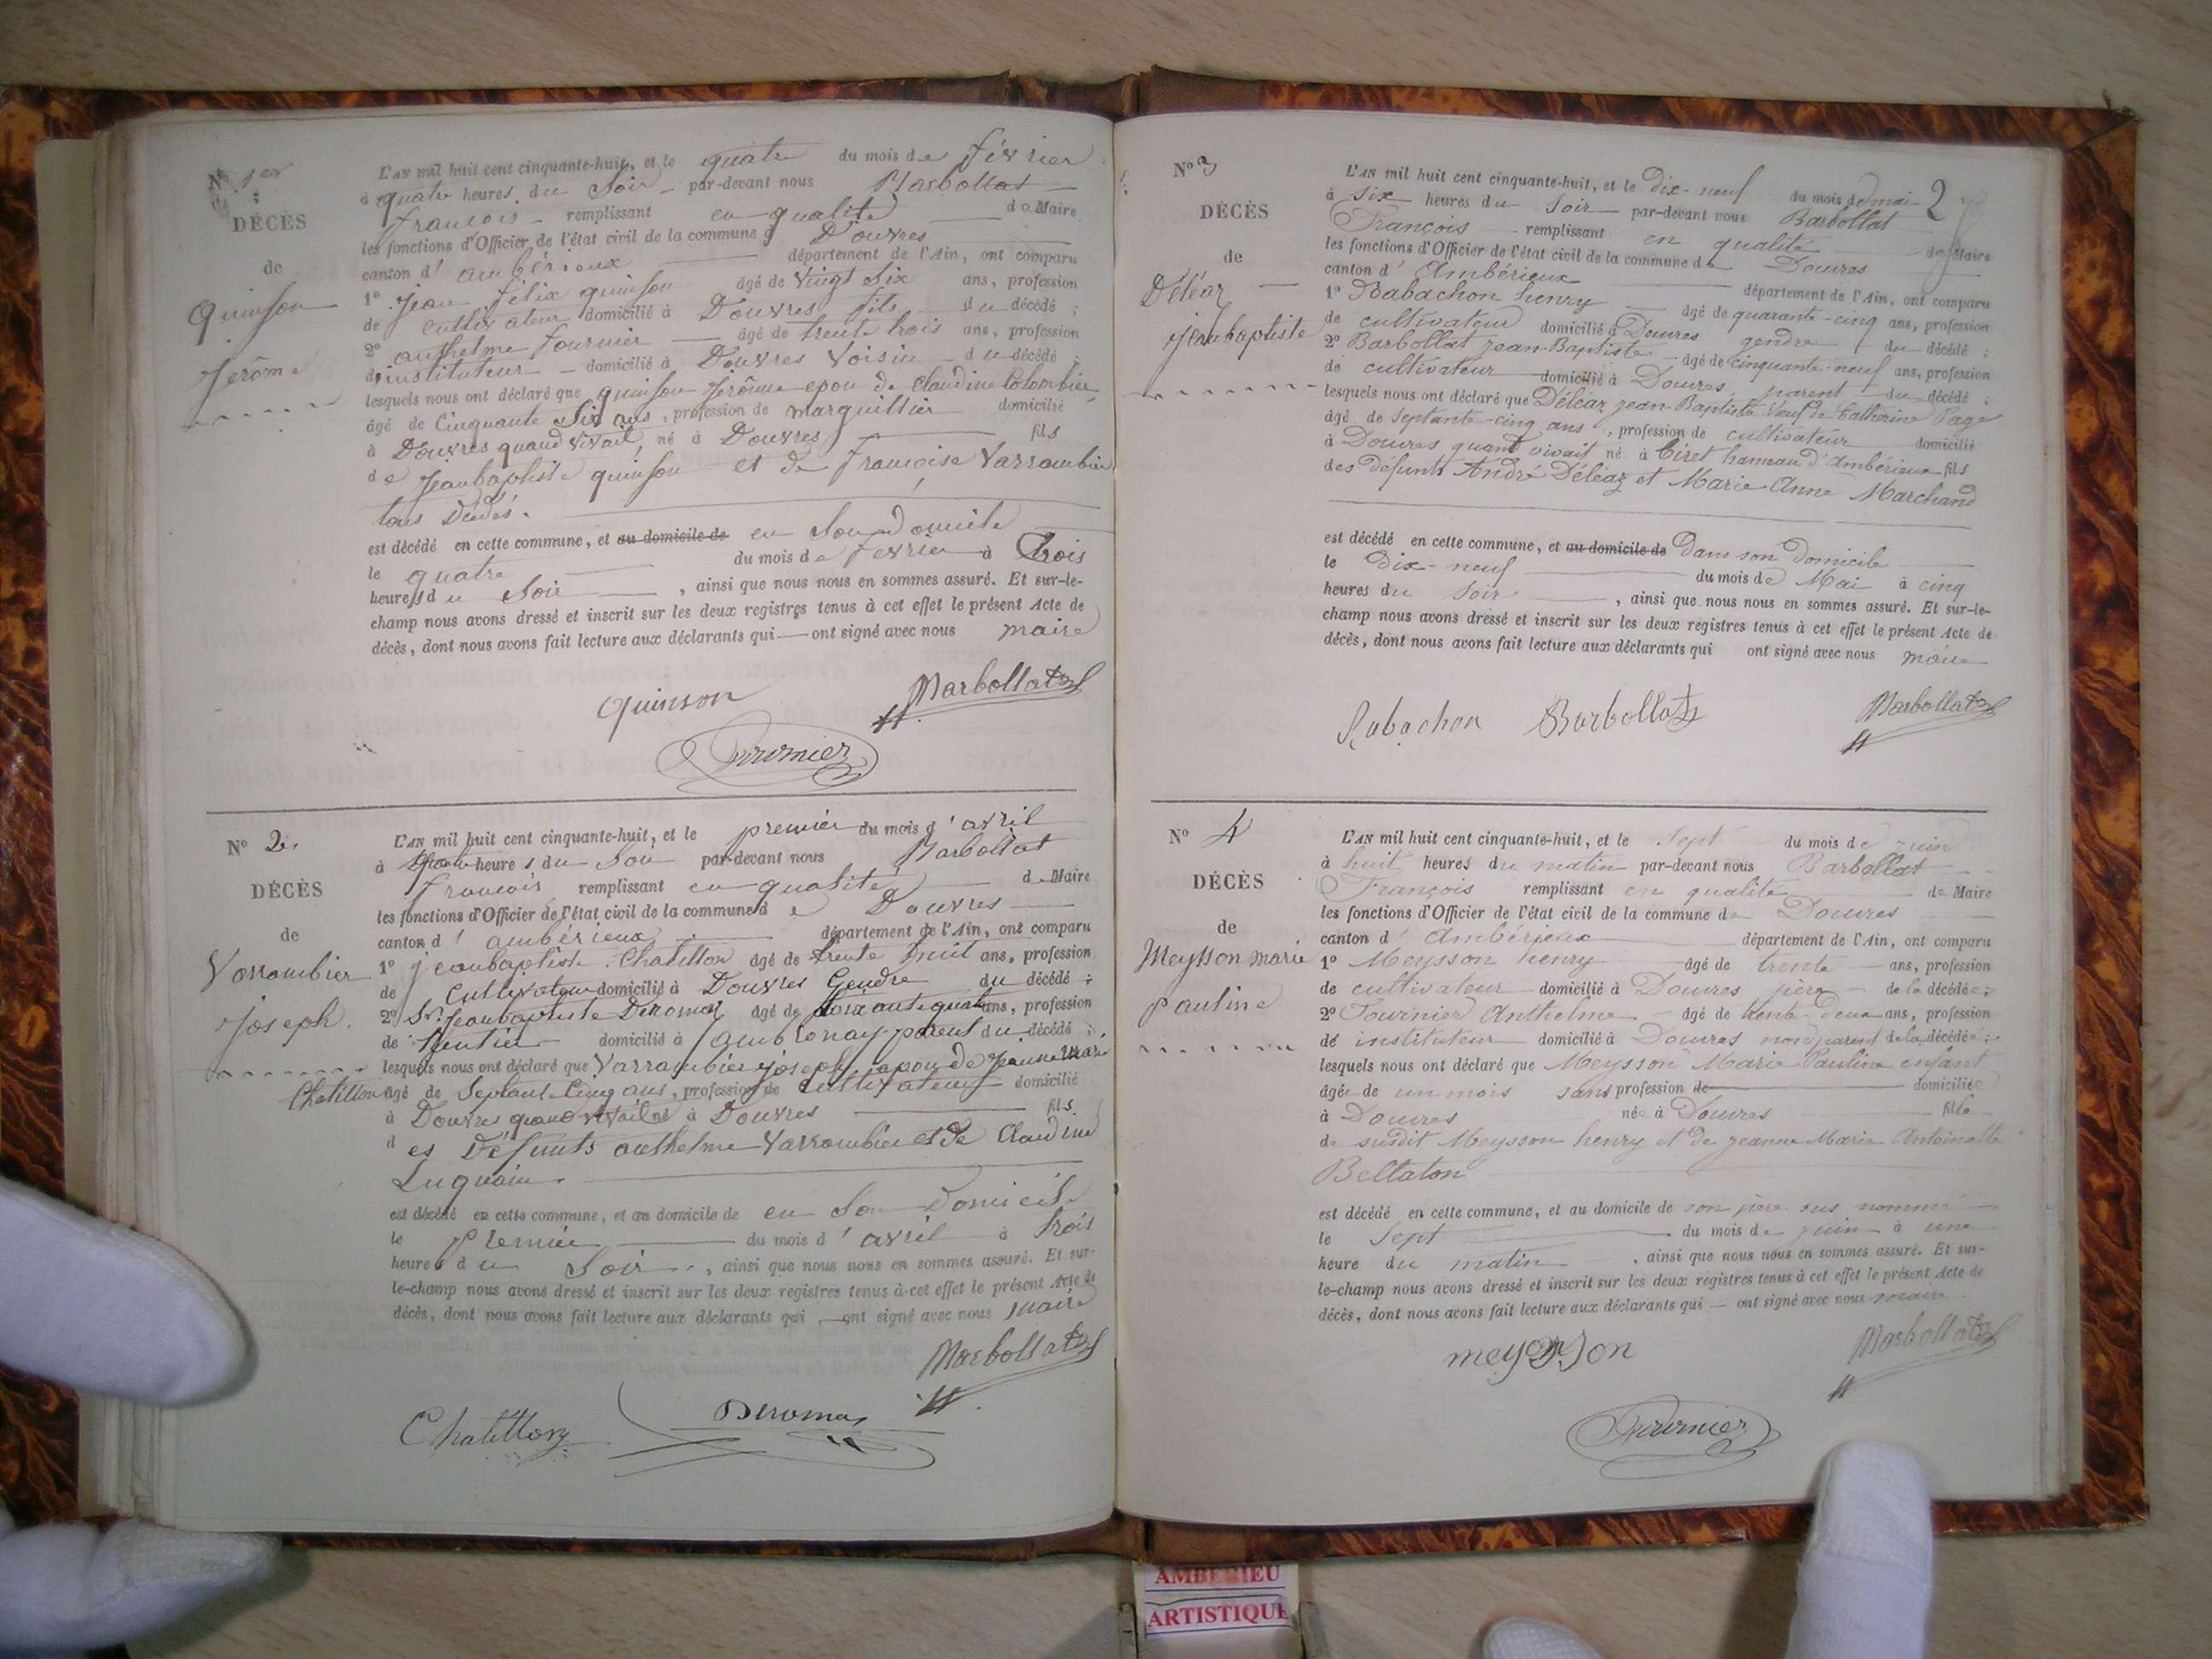 N° 1er
DÉCÈS
de
quinson
Jérôme
L'AN mil huit cent cinquante-huit, et le quatre du mois de février
à quatre heures du Soir par-devant nous Barbollat
francois remplissant en qualité de Maire
les fonctions d'Officier de l'état civil de la commune d Douvres
canton d' ambérieux département de l'Ain, ont comparu
1° Jean félix quinson âgé de Vingt Six ans, profession
de cultivateur domicilié à Douvres fils du décédé ;
2° anthelme fournier âgé de trente trois ans, profession
d'instituteur domicilié à Douvres Voisin du décédé ;
lesquels nous ont déclaré que quinson Jérôme epou de Claudine Colombier
âgé de Cinquante Six ans, profession de marguillier domicilié
à Douvres quand vivait, né à Douvres fils
de Jeanbaptiste quinson et de francoise Varrambier
tous Dédés.
est décédé en cette commune, et au domicile de en Son Domicile
le quatre du mois de fevrier à trois
heures du Soir, ainsi que nous nous en sommes assuré. Et sur-le-
champ nous avons dressé et inscrit sur les deux registres tenus à cet effet le présent Acte de
décès, dont nous avons fait lecture aux déclarants qui ont signé avec nous maire
quinson Barbollat
fournier
N° 2.
DÉCÈS
de
Varrambier
Joseph.
L'AN mil huit cent cinquante-huit, et le premier du mois d'avril
à quatre heures du Soir par-devant nous Barbollat
francois remplissant en qualité de Maire
les fonctions d'Officier de l'état civil de la commune de Douvres
canton d' ambérieux département de l'Ain, ont comparu
1° jeanbaptiste Chatillon âgé de trente huit ans, profession
de Cultivateur domicilié à Douvres Gendre du décédé ;
2° Sr. Jeanbaptiste Deromas âgé de soixantequatre ans, profession
de Rentier domicilié à ambronay parent du décédé ;
lesquels nous ont déclaré que Varrambier joseph epou de Jeanne Marie
Chatillon âgé de Septante Cinq ans, profession de Cultivateur domicilié
à Douvres quand vivait né à Douvres fils
des Défunts anthelme Varrambier et de Claudine
Luquain.
est décédé en cette commune, et au domicile de en Son Domicile
le Premier du mois d'avril à trois
heures du Soir, ainsi que nous nous en sommes assuré. Et sur-
le-champ nous avons dressé et inscrit sur les deux registres tenus à cet effet le présent Acte de
décès, dont nous avons fait lecture aux déclarants qui ont signé avec nous maire
Barbollat
Chatillon Deromas
2
N° 3
DÉCÈS
de
Déléaz
jeanbaptiste
L'AN mil huit cent cinquante-huit, et le dix-neuf du mois de mai
à six heures du Soir par-devant nous Barbollat
François remplissant en qualité de Maire
les fonctions d'Officier de l'état civil de la commune de Douvres
canton d' Ambérieux département de l'Ain, ont comparu
1° Rabachon henry âgé de quarante-cinq ans, profession
de cultivateur domicilié à Douvres gendre du décédé ;
2° Barbollat jean-Baptiste âgé de cinquante-neuf ans, profession
de cultivateur domicilié à Douvres, parent du décédé ;
lesquels nous ont déclaré que Déléaz jean-Baptiste Veuf de Catherine Page
âgé de septante-cinq ans, profession de cultivateur domicilié
à Douvres quant vivait né à Tiret hameau d'Ambérieux fils
des défunts André Déléaz et Marie Anne Marchand
est décédé en cette commune, et au domicile de Dans son Domicile
le Dix-neuf du mois de Mai à cinq
heures du Soir, ainsi que nous nous en sommes assuré. Et sur-le-
champ nous avons dressé et inscrit sur les deux registres tenus à cet effet le présent Acte de
décès, dont nous avons fait lecture aux déclarants qui ont signé avec nous maire
Rabachon Barbollat Barbollat
N° 4
DÉCÈS
de
Meysson marie
pauline
L'AN mil huit cent cinquante-huit, et le Sept du mois de juin
à huit heures du matin par-devant nous Barbollat
François remplissant en qualité de Maire
les fonctions d'Officier de l'état civil de la commune de Douvres
canton d' Ambérieux département de l'Ain, ont comparu
1° Meysson henry âgé de trente ans, profession
de cultivateur domicilié à Douvres père de la décédée ;
2° Fournier Anthelme âgé de trente-deux ans, profession
dé instituteur domicilié à Douvres non parent de la décédée ;
lesquels nous ont déclaré que Meysson Marie Pauline enfant
âgée de un mois sans profession de domiciliée
à Douvres née à Douvres fille
de susdit Meysson henry et de jeanne Marie Antoinette
Bellaton
est décédé en cette commune, et au domicile de son père sus nommé
le Sept du mois de juin à une
heure du matin, ainsi que nous nous en sommes assuré. Et sur-
le-champ nous avons dressé et inscrit sur les deux registres tenus à cet effet le présent Acte de
décès, dont nous avons fait lecture aux déclarants qui ont signé avec nous maire
meysson Barbollat
fournier
AMBERIEU
ARTISTIQUE